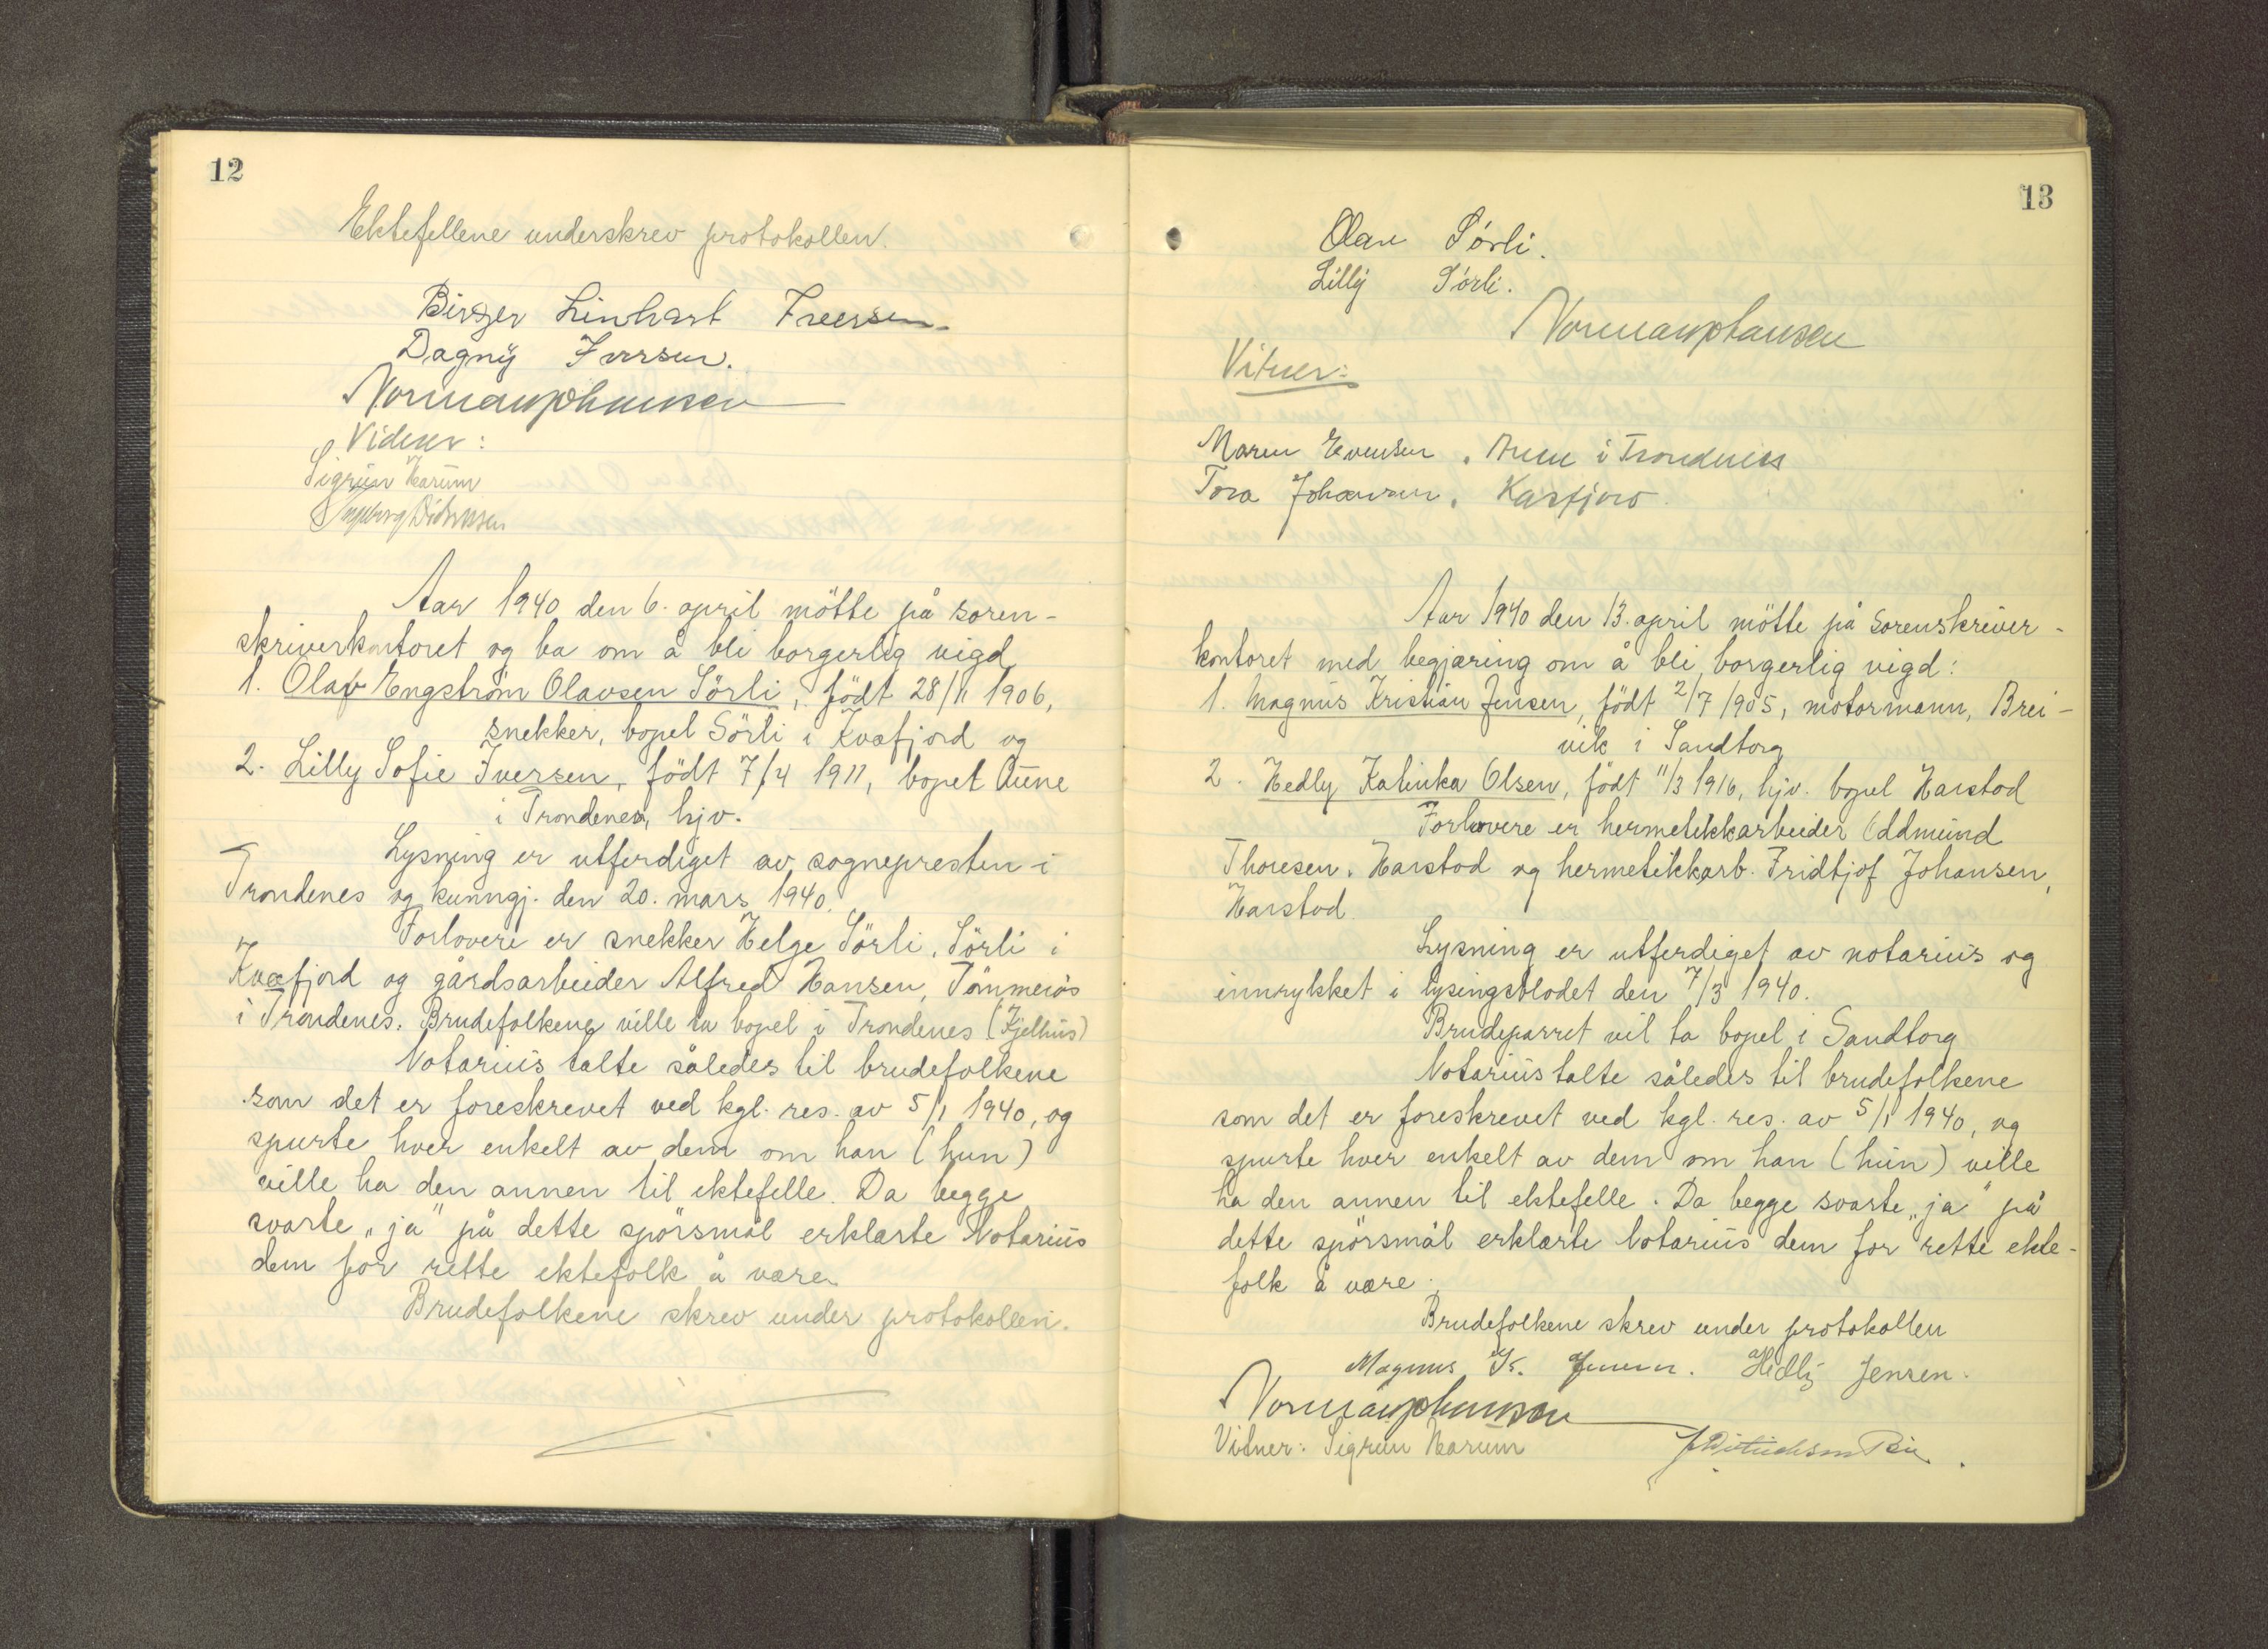 12
Ektefellene underskrev protokollen.
Birger Linhart Iversen.
Dagny Iversen.
Vidner:
Sigrun Harum
Ingeborg Didriksen
Aar 1940 den 6. april mötte på soren-
skriverkontoret og ba om å bli borgerlig vigd
1. Olav Engström Olavsen Sörli, födt 28/11 1906,
snekker, bopel Sörli i Kvæfjord og
2. Lilly Sofie Iversen, födt 7/4 1911, bopel Aune
i Trondenes, hjv.
Lysning er utferdiget av sognepresten i
Trondenes og kunngj. den 20. mars 1940.
Forlovere er snekker Helge Sörli, Sörli i
Kvæfjord og gårdsarbeider Alfred Hansen,
i Trondenes. Brudefolkene ville ta bopel i Trondenes (Fjelhus)
Notarius talte således til brudefolkene
som det er foreskrevet ved kgl. res. av 5/1 1940, og
spurte hver enkelt av dem om han (hun)
ville ha den annen til ektefelle. Da begge
svarte „ja" på dette spörsmål erklærte Notarius
dem for rette ektefolk å være.
Brudefolkene skrev under protokollen.
13
Olav Sörli.
Lilly Sörli.
Vitner:
Maren Evensen, Aune i Trondenes
Tora Johansen, Kasfjord.
Aar 1940 den 13. april mötte på Sorenskriver-
kontoret med begjæring om å bli borgerlig vigd:
1. Magnus Kristian Jensen, födt 2/7 1905, motormann, Brei-
vik i Sandtorg
2. Hedly Kalinka Olsen, födt 11/3 1916, hjv. bopel Harstad
Forlovere er hermetikkarbeider Oddmund
Thoresen, Harstad og hermetikkarb. Fridtjof Johansen,
Harstad.
Lysning er utferdiget av notarius og
innrykket i lysingsbladet den 7/3 1940.
Brudeparret vil ta bopel i Sandtorg
Notarius talte således til brudefolkene
som det er foreskrevet ved kgl. res. av 5/1 1940, og
spurte hver enkelt av dem om han (hun) ville
ha den annen til ektefelle. Da begge svarte „ja" på
dette spörsmål erklærte Notarius dem for rette ekte-
folk å være.
Brudefolkene skrev under protokollen
Magnus K. Jensen. Hedly Jensen.
Vitner: Sigrun Harum